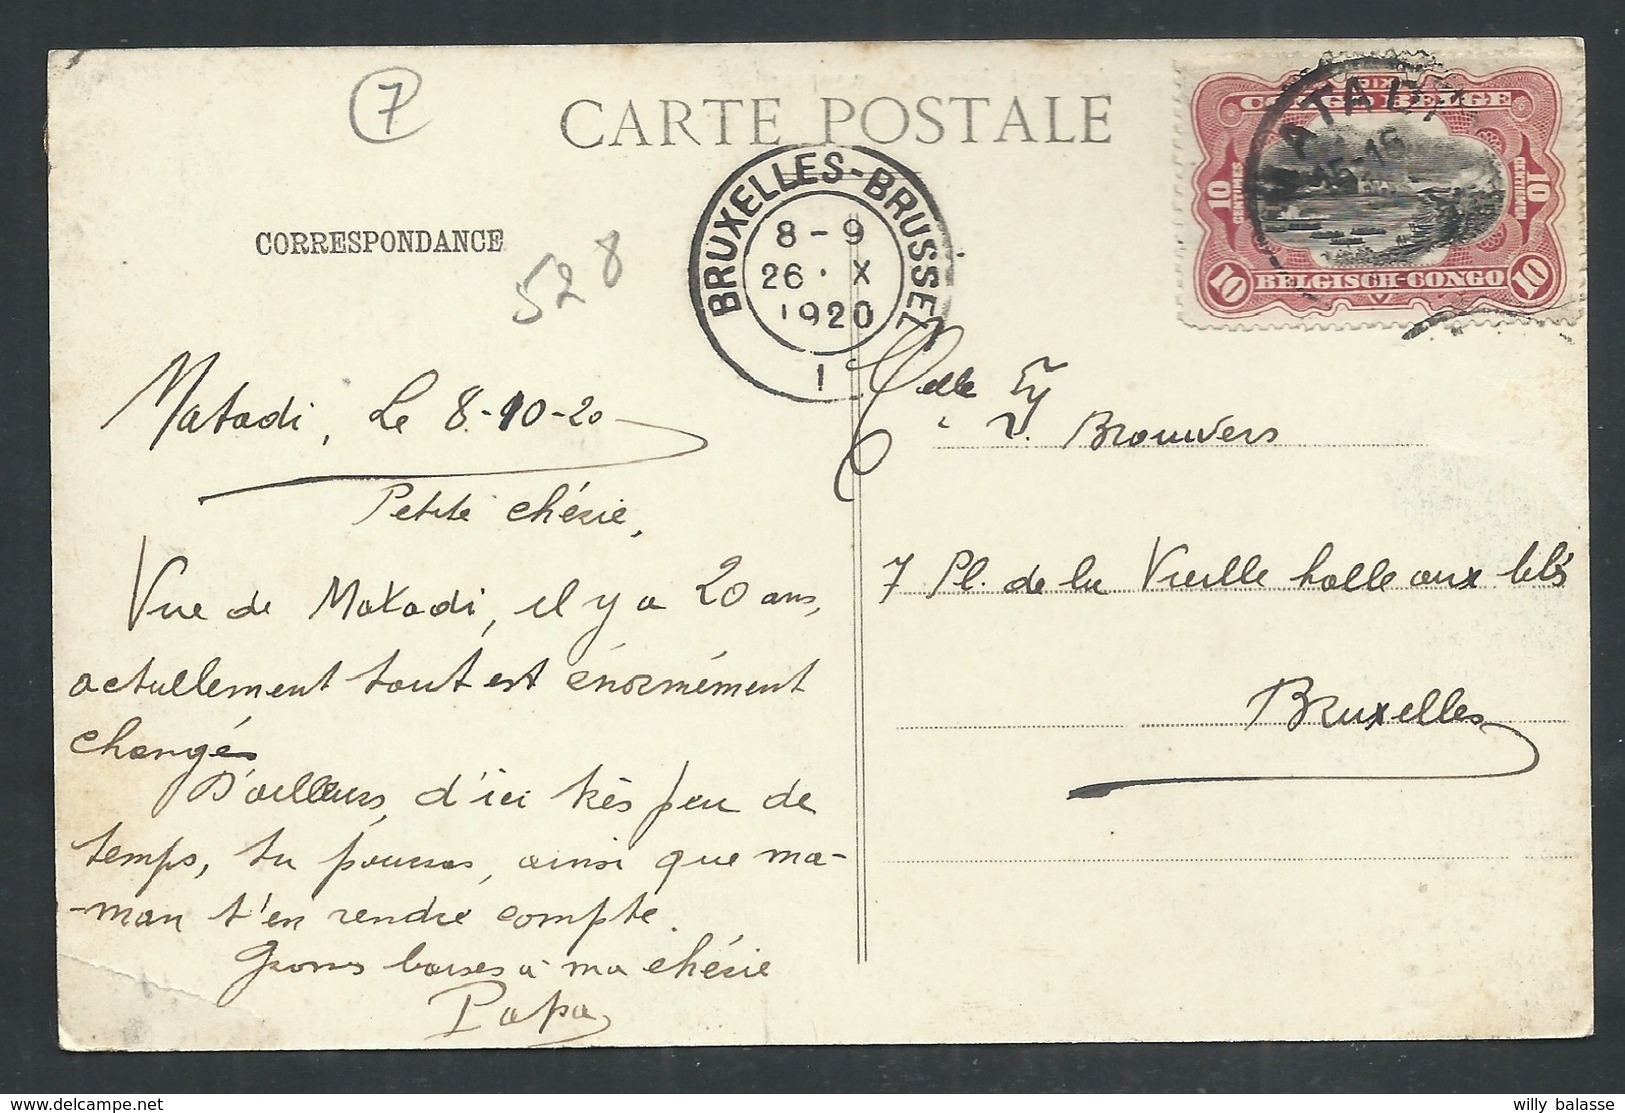 7
CARTE POSTALE
CORRESPONDANCE
528
BRUXELLES-BRUSSEL
8-9
26 · X
1920
1
MATADI
15-16
DIX
CONGO BELGE
10 CENTIMES
10 CENTIEMEN
10 BELGISCH-CONGO 10
Matadi, Le 8-10-20
Petite chérie,
Vue de Matadi, il y a 20 ans,
actuellement tout est énormément
changés
D'ailleurs, d'ici très peu de
temps, tu pourras, ainsi que ma-
-man t'en rendre compte.
Grosses baises à ma chérie
Papa
elle
Brouwers
7 Pl. de la Vieille halle aux blés
Bruxelles
willy balasse